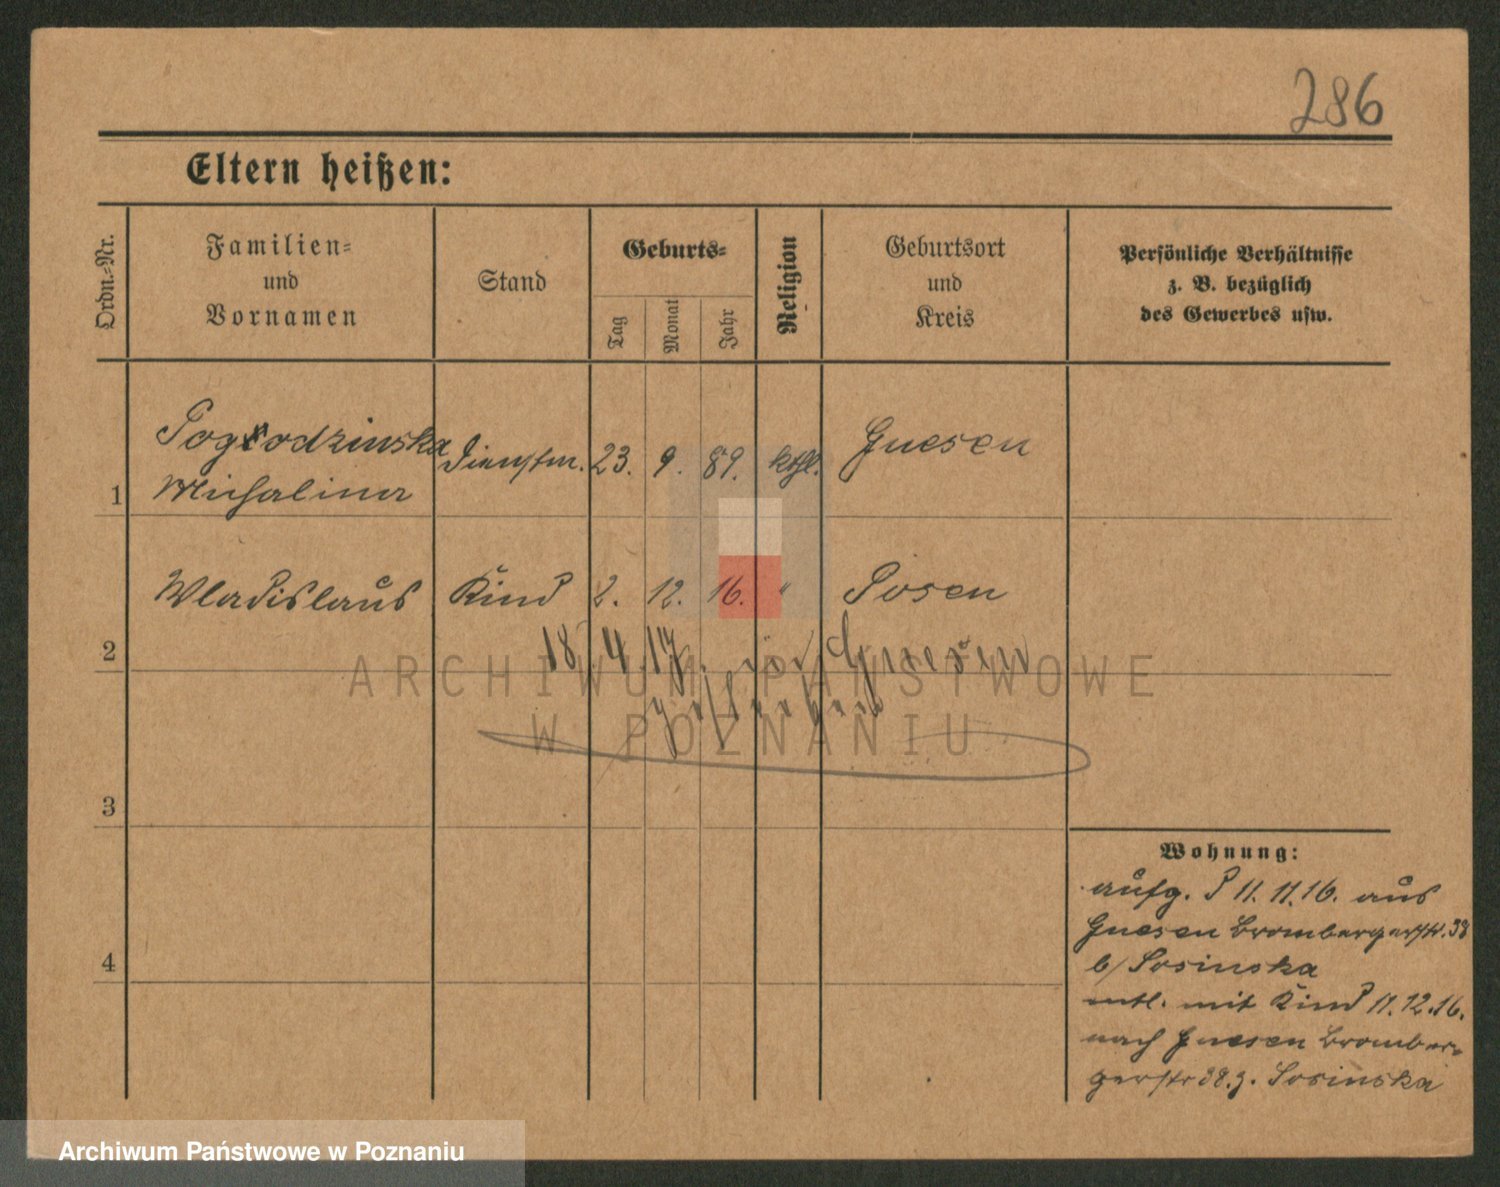 286
Eltern heißen:
Ordn.=Nr.
Familien=
und
Vornamen
Stand
Geburts=
Tag
Monat
Jahr
Religion
Geburtsort
und
Kreis
Persönliche Verhältnisse
z. B. bezüglich
des Gewerbes usw.
1
Pogrodzinska
Michalina
Dienstm. 23. 9. 89. kthl. Gnesen
2
Wladislaus Kind 2. 12. 16. " Posen
18 4 17. Gnesen
3
4
Wohnung:
aufg. 11. 11. 16. aus
Gnesen Brombergerstr. 38
b/ Sosinska
entl. mit Kind 11. 12. 16.
nach Gnesen Bromber-
gerstr 38. z. Sosinska
ARCHIWUM PAŃSTWOWE
W POZNANIU
Archiwum Państwowe w Poznaniu